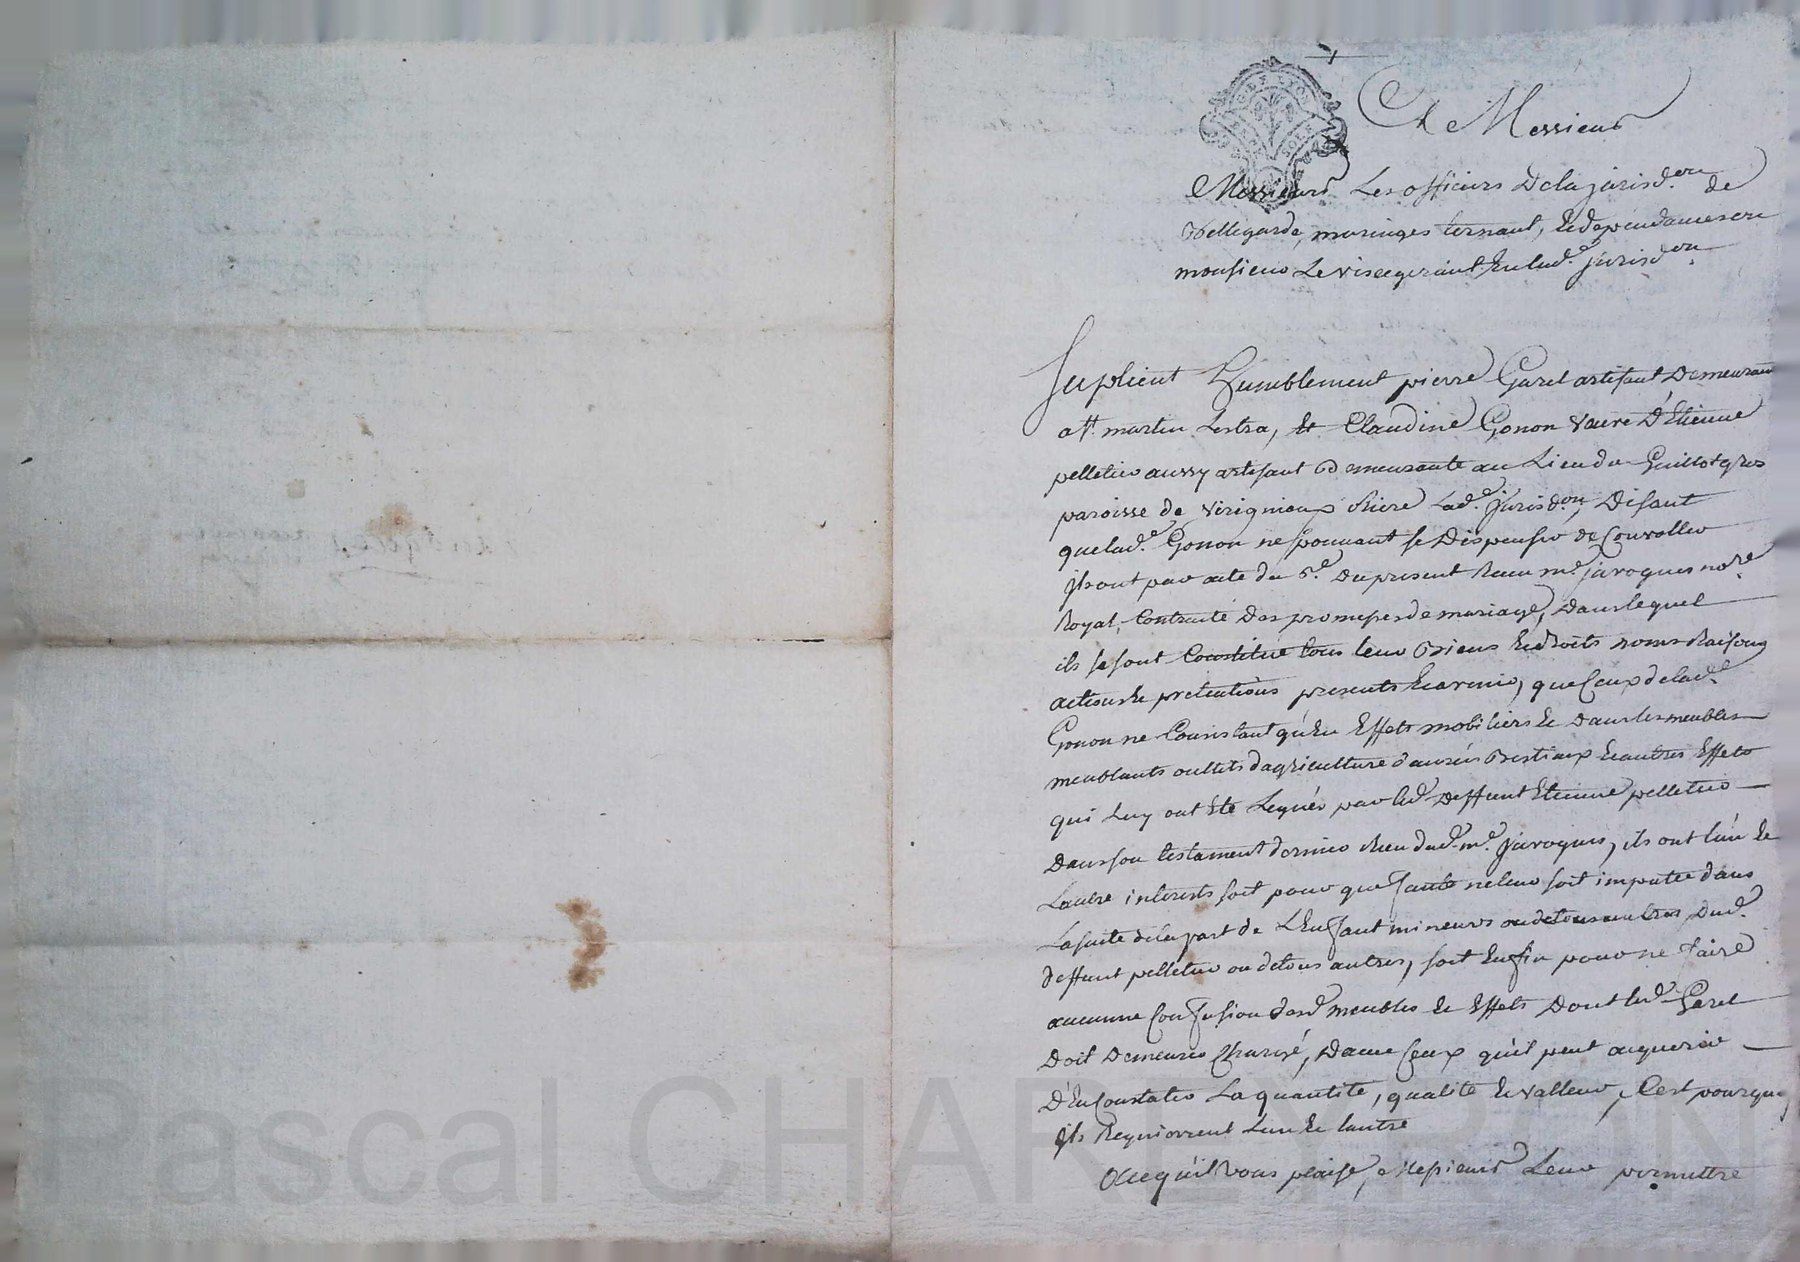 A Messieurs
Messieurs Les officiers Dela jurisd.on de
Bellegarde, maringes ternant, & dependances ou
monsieur Le visegerant en lad.e jurisd.on
Suplient humblement pierre Garel artisant Demeurant
a St. martin Lestra, Et Claudine Gonon veuve D'Etienne
pelletier aussy artisant Demeurante au Lieu de Guillot gros
paroisse de virigneux riere Lad.e jurisd.on, Disant
que lad.e Gonon ne pouvant se Dispenser de Convoller
ils ont par acte du 6.e Du present Recu m.e jaroques no.re
Royal, Contracté Des promesses de mariage, Dans lequel
ils se sont Constitué tous leur Biens & Droits noms Raisons
actions & pretentions presents & avenir, que Ceux de lad.e
Gonon ne Consistant qu'en Effets mobiliers & Dans les meubles
meublants outils d'agriculture danrés Bestiaux & autres Effets
qui Luy ont Eté Legués par led. Deffunt Etienne pelletier
Dans son testament dernier Recu dud. m.e jaroques, ils ont l'un &
Lautre interests soit pour que faute ne leur soit imputée dans
La suite de la part de L'Enfant mineurs ou de tous autres Dud.
deffunt pelletier ou de tous autres, soit Enfin pour ne faire
aucunne Confusion desd. meubles & Effets Dont led. Garel
Doit Demeurer Chargé, D'avec Ceux qu'il peut acquerir
D'En Constater La quantité, qualité & valleur, C'est pourquoy
ils Requierrent L'un & lautre
A ce qu'il vous plaise, Messieurs Leur permettre
Pascal CHARLETRAIN